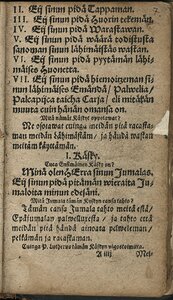 II. Eij sinun pidä Tappaman.
III. Eij sinun pidä Huorin tekemän.
IV. Eij sinun pidä Warastaman.
V. Eij sinun pidä wäärä todistusta
sanoman sinun lähimäistäs wastan.
VI. Eij sinun pidä pyytämän lähimäises Huonetta.
VII. Eij sinun pidä himoitzeman sinun lähimäises Emändä / Palwelia /
Palcapijca taicka Carja / eli mitäkän
muuta cuin hänen omansa on.
Mitä nämät Käskyt opettawat?
Me opetamme cuinga meidän pitä
meidän lähimästäm / ja händä wastan
meitäm käyttämän.
I. Käsky.
Cuca Ensimäinen Käsky on?
Minä olen HErra sinun Jumalas,
Eij sinun pidä pitämän wieraita Jumaloita minun edesäni.
Mitä Jumala tämän Käskyn cansa tahto?
Tämän cansa Jumala tahto meitä estä /
Epäjumalan palweluxesta / ja tahto että
meidän pitä händä ainoata palweleman /
pelkämän ja racastaman.
Cuinga D. Lutherus tämän Käskyn
A iiij